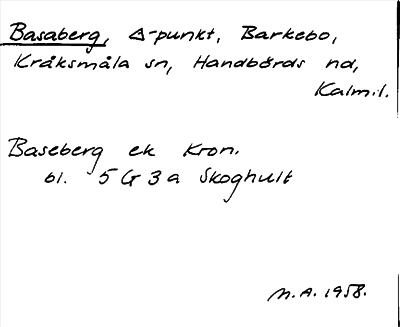 Basaberg, △-punkt, Barkebo,
Kråksmåla sn, Handbörds hd,
Kalm.l.
Baseberg ek Kron.
bl. 5 G 3 a Skoghult
M.A. 1958.